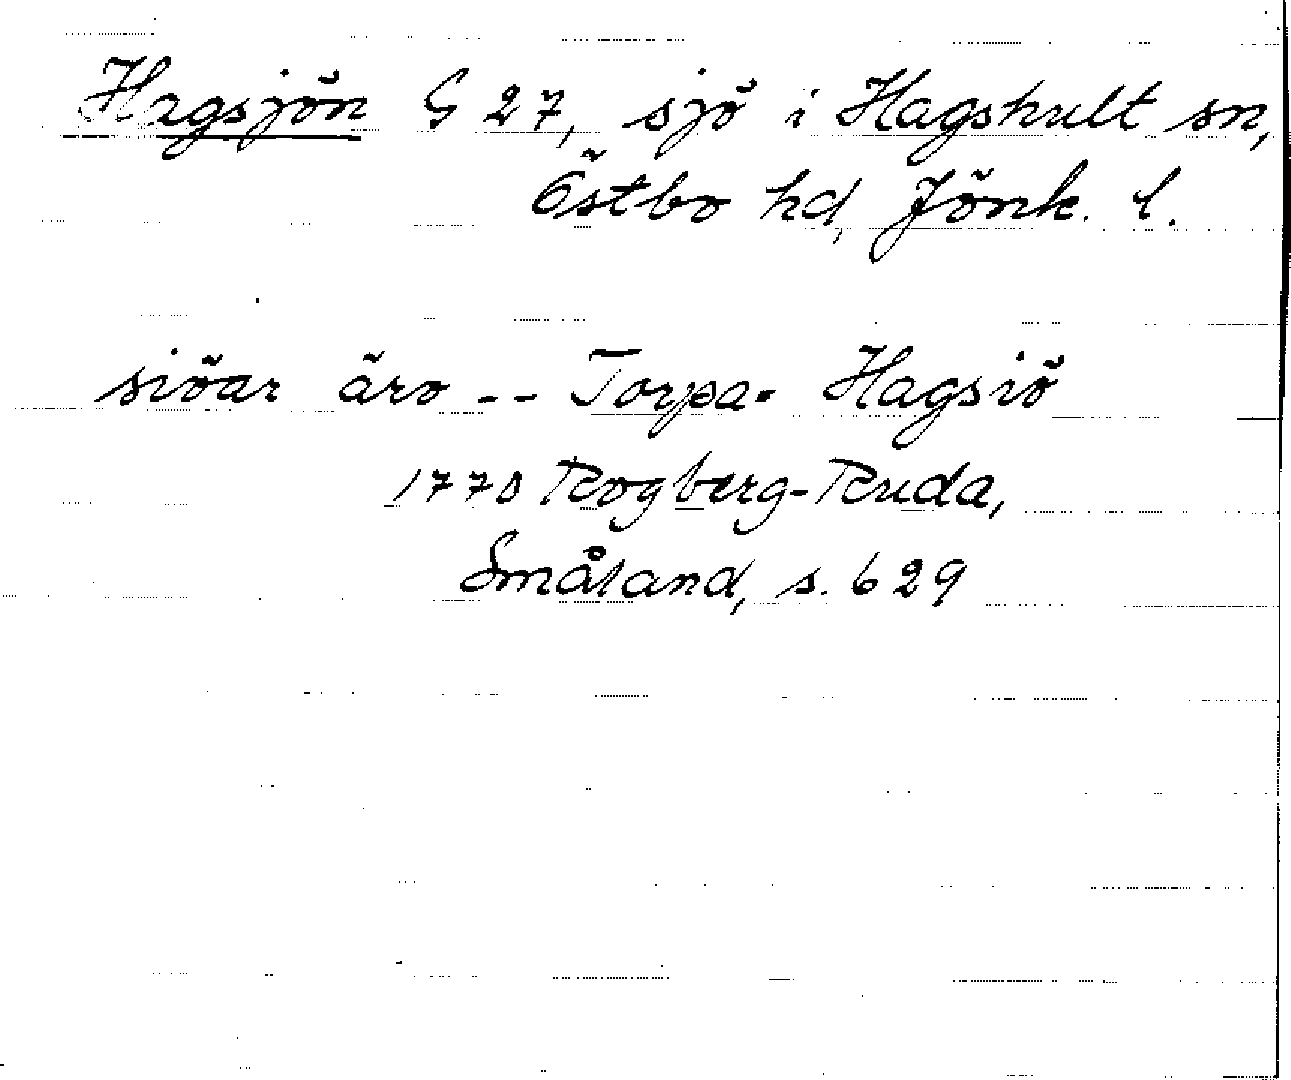 Hagsjön G 27, sjö i Hagshult sn,
Östbo hd, Jönk. l.
siöar äro -- Torpa- Hagsiö
1770 Rogberg-Ruda,
Småland, s. 629